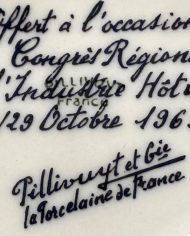 offert à l'occasio
Congrès Région
l'Industrie Hôt
29 Octobre 196
PILLIVUYT
France
Pillivuyt et Cie
la Porcelaine de France